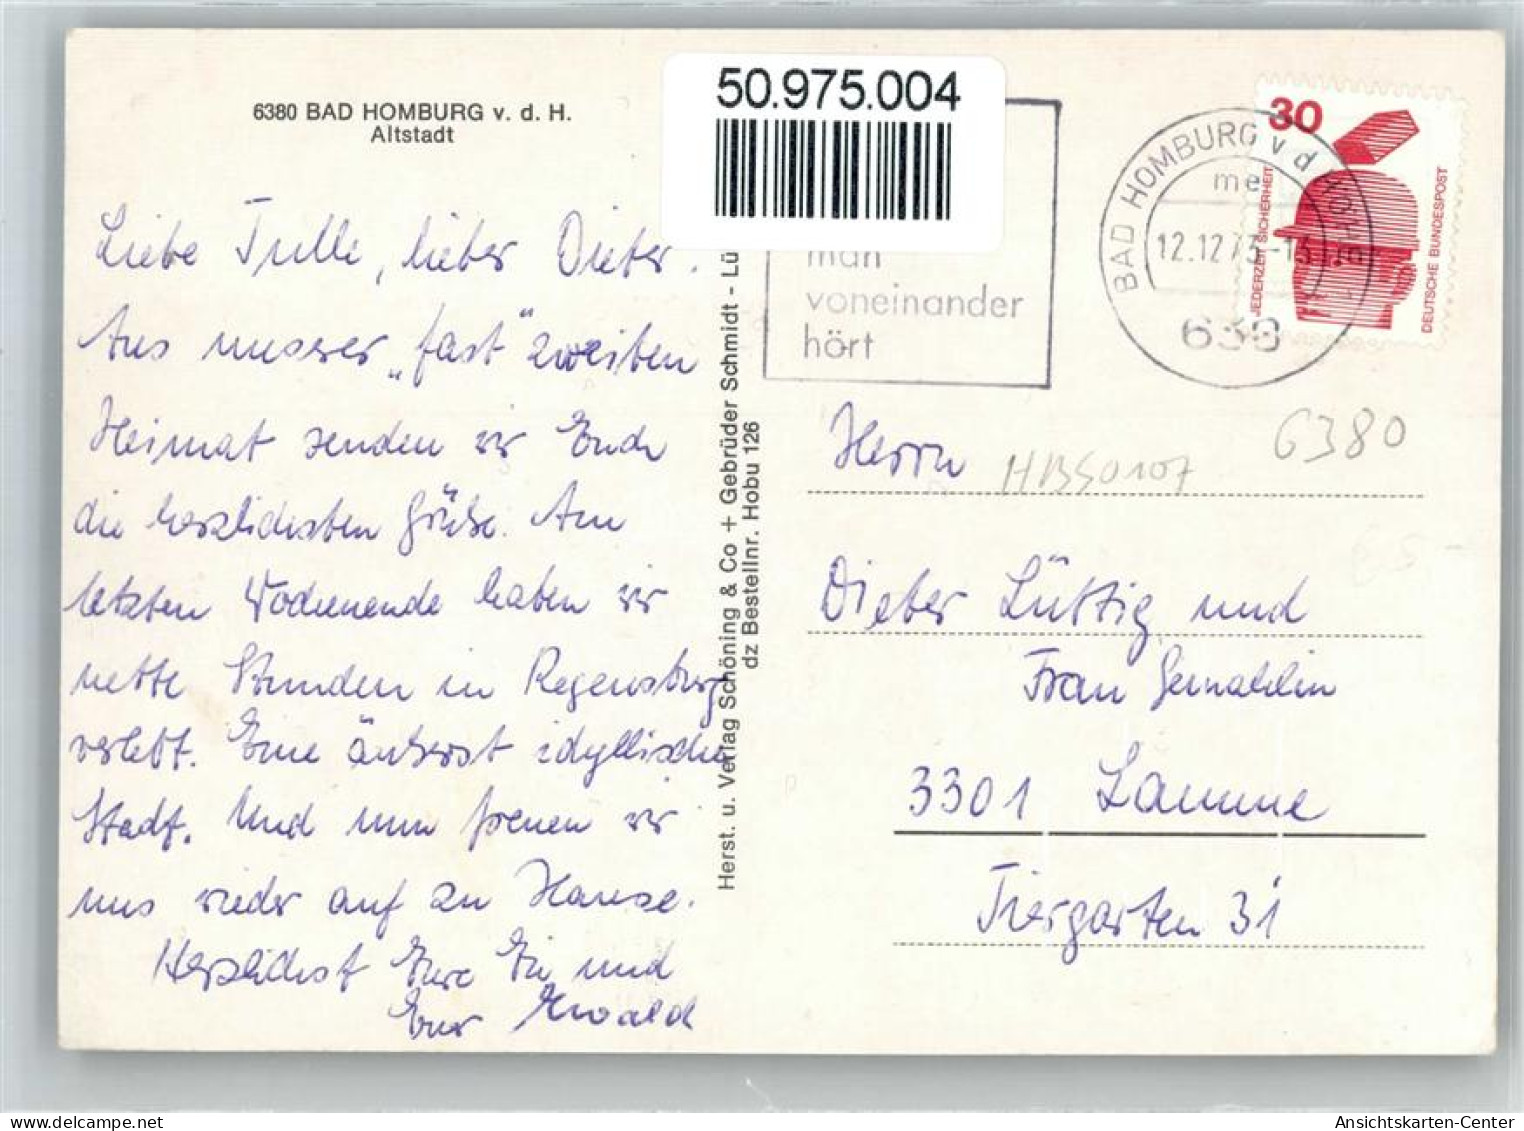 6380 BAD HOMBURG v. d. H.
Altstadt
50.975.004
Liebe Tulle, lieber Dieter.
Aus unserer „fast" zweiten
Heimat senden wir Euch
die herzlichsten Grüße. Am
letzten Wochenende haben wir
nette Stunden in Regensburg
verlebt. Eine äußerst idyllische
Stadt. Und nun freuen wir
uns wieder auf zu Hause.
Herzlichst Eure Evi und
Euer Ewald
Herst. u. Verlag Schöning & Co + Gebrüder Schmidt - Lü
dz Bestellnr. Hobu 126
man
voneinander
hört
BAD HOMBURG v d HÖHE
me
12.12.73-15
638
30
JEDERZEIT SICHERHEIT
DEUTSCHE BUNDESPOST
6380
HBS0107
Herrn
Dieter Lüttig und
Frau Gemahlin
3301 Lamme
Tiergarten 31
Ansichtskarten-Center